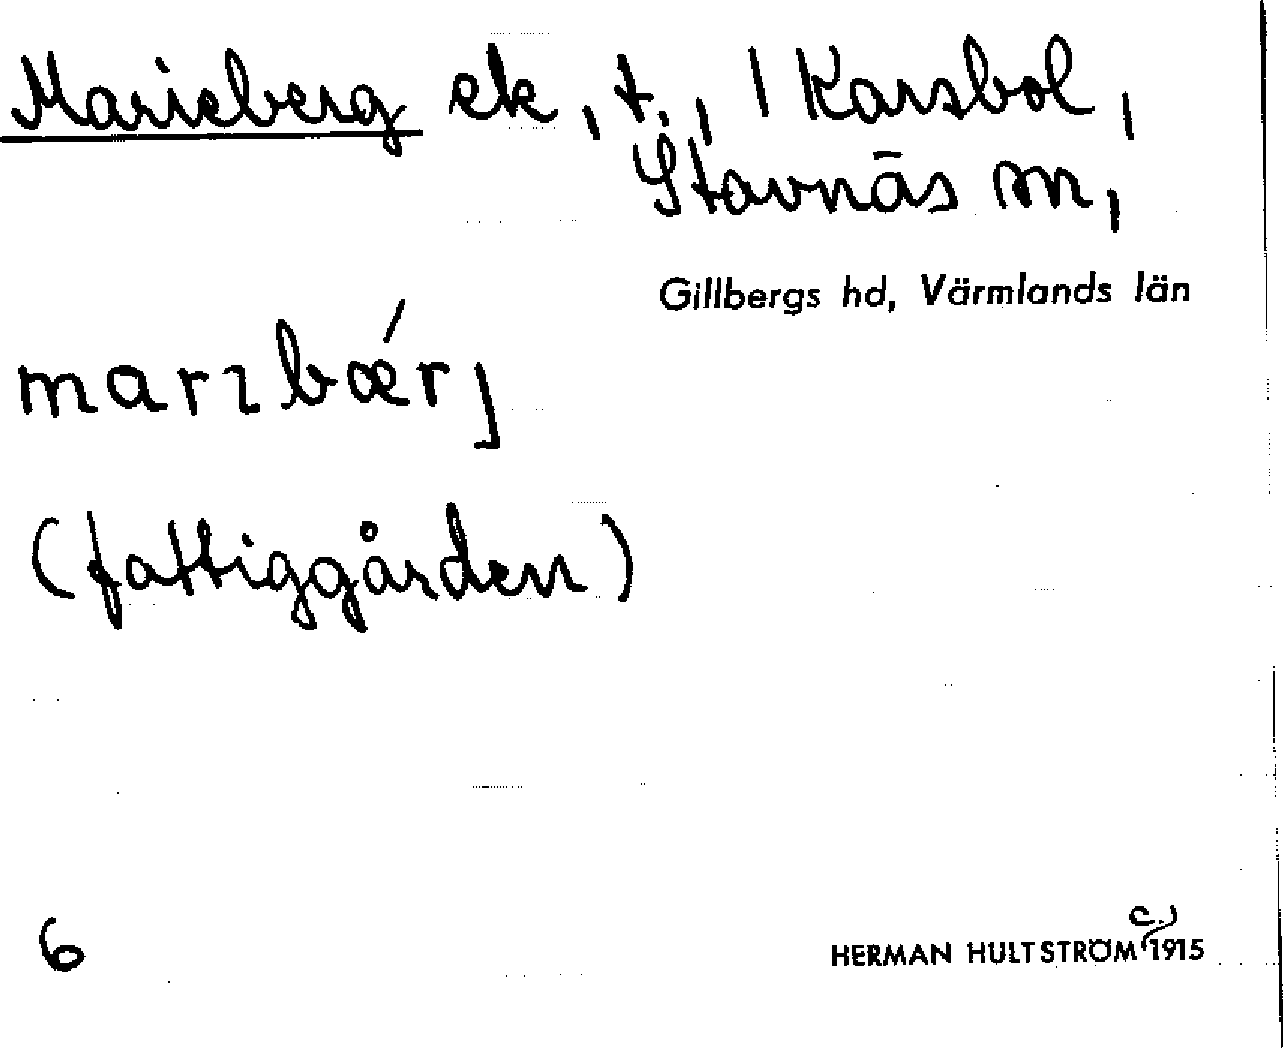 Marieberg ek, t., 1 Karsbol,
Stavnäs sn,
Gillbergs hd, Värmlands län
marɪbǽrj
(fattiggården)
6
c.
HERMAN HULTSTRÖM 1915